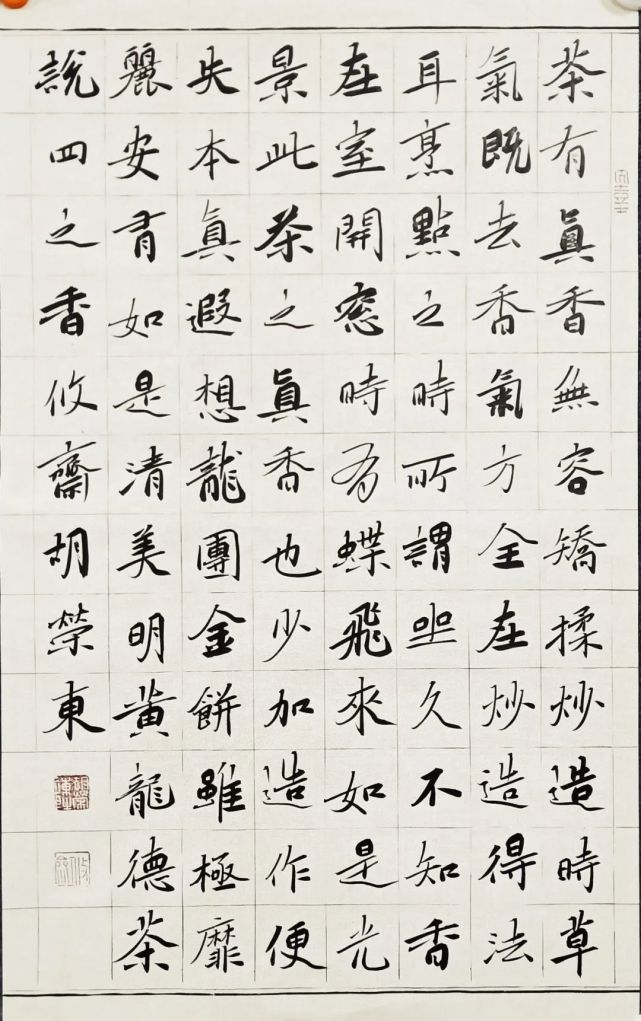 茶有真香無容矯揉炒造時草
氣既去香氣方全在炒造得法
耳烹點之時所謂坐久不知香
在室開窓時有蝶飛來如是光
景此茶之真香也少加造作便
失本真遐想龍團金餅雖極靡
麗安有如是清美明黃龍德茶
說四之香攸齋胡榮東